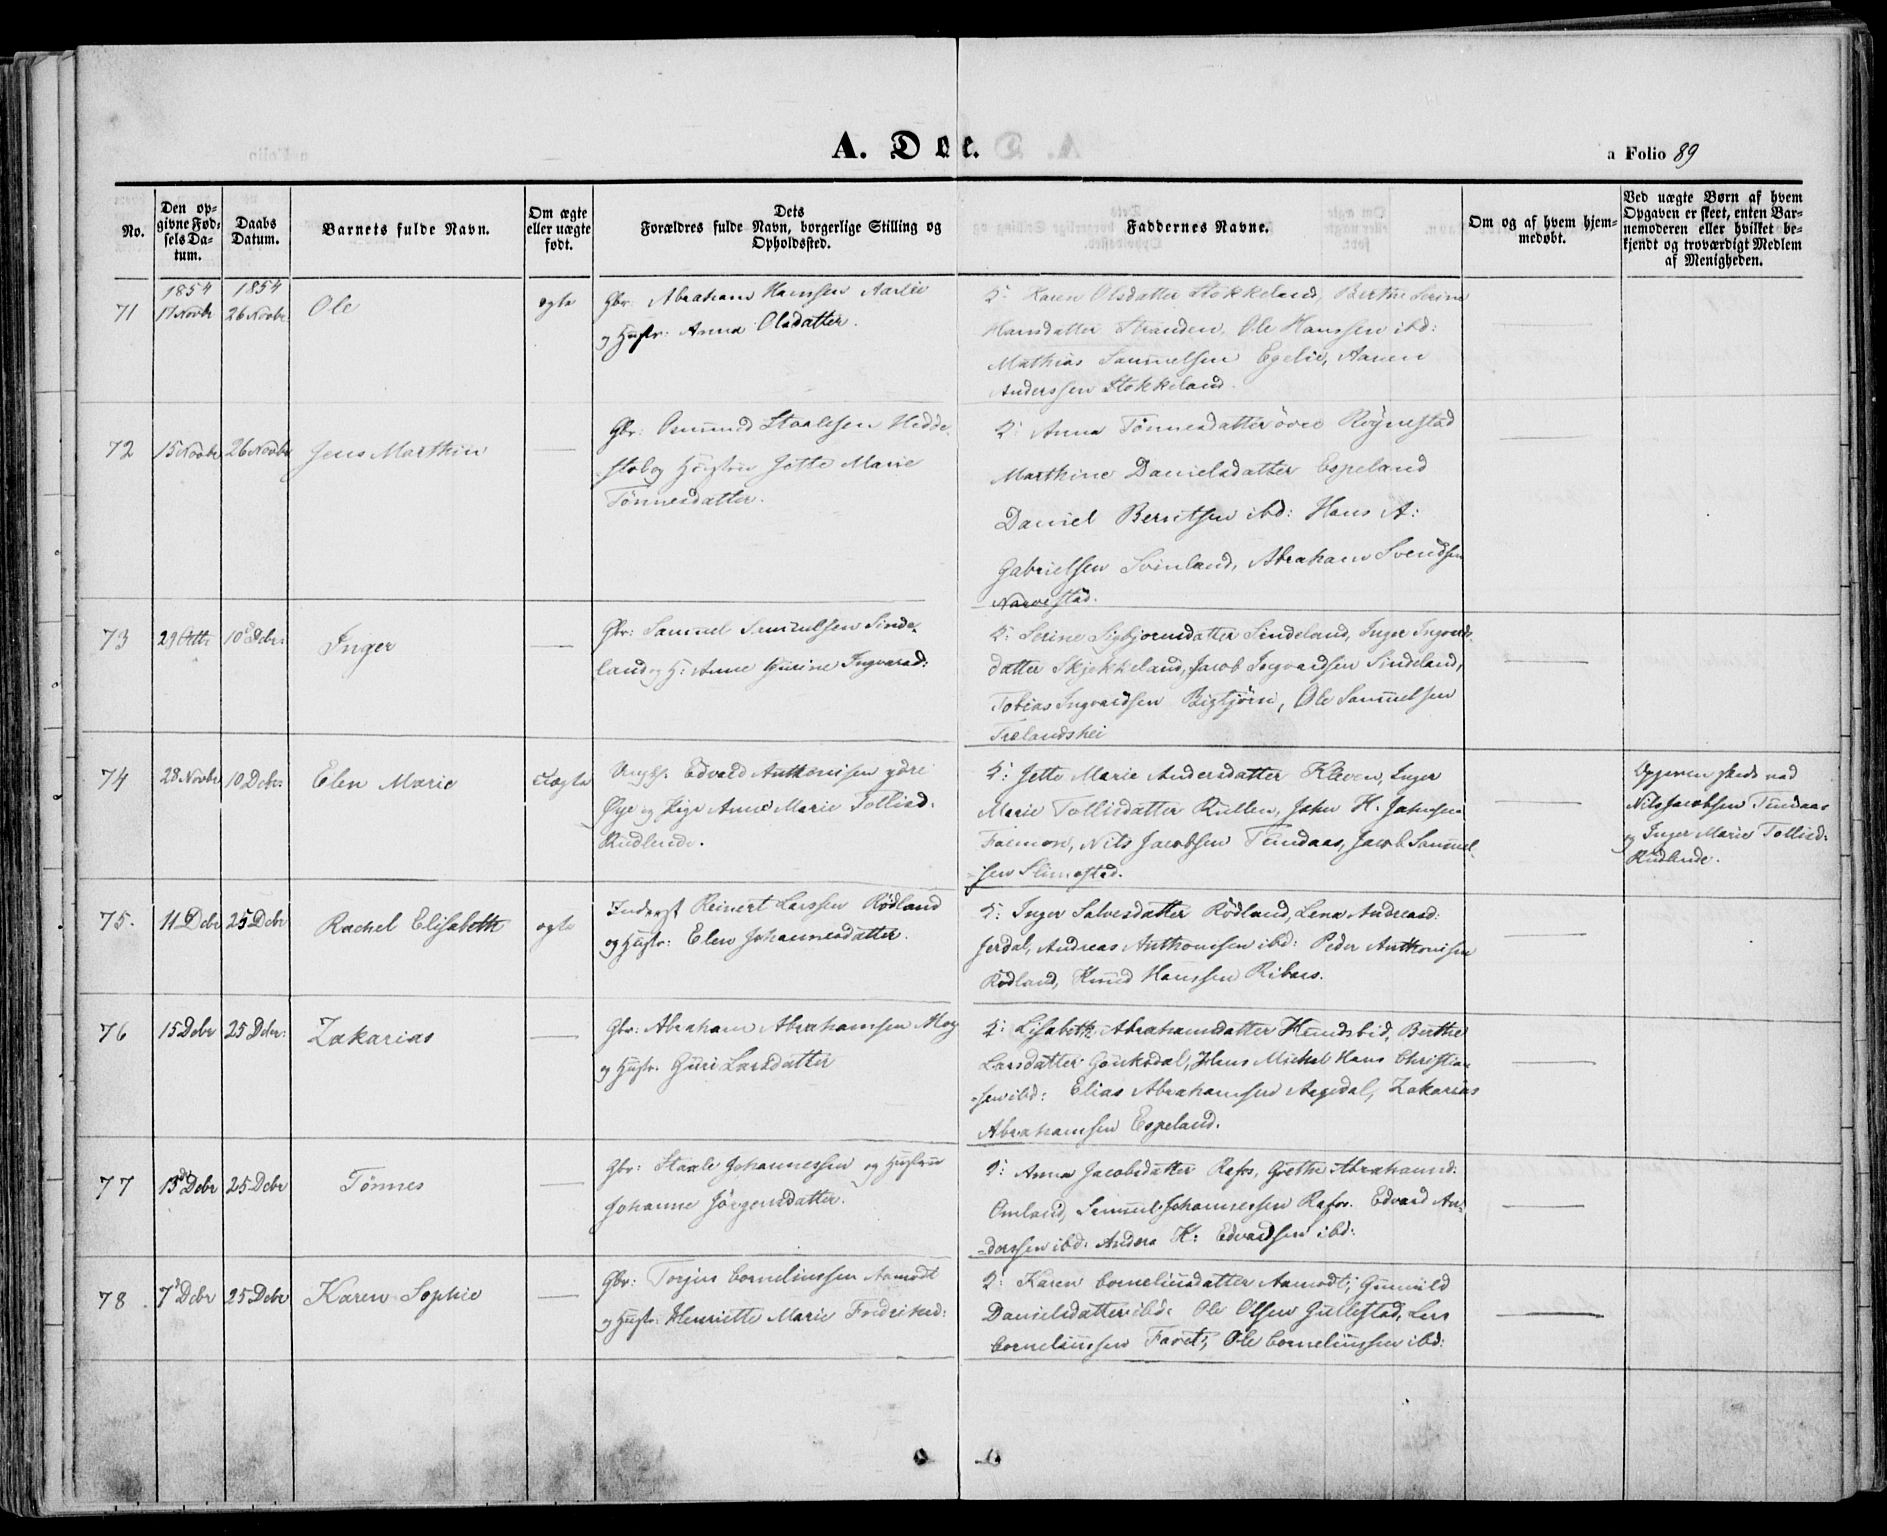 A. Døe.
a Folio 89
No.
Den op-
givne Fød-
sels Da-
tum.
Daabs
Datum.
Barnets fulde Navn.
Om ægte
eller uægte
født.
Dets
Forældres fulde Navn, borgerlige Stilling og
Opholdssted.
Faddernes Navne.
Om og af hvem hjem-
medøbt.
Ved uægte Børn af hvem
Opgaven er skeet, enten Bar-
nemoderen eller hvilket be-
kjendt og troværdigt Medlem
af Menigheden.
1854 1854
71 17 Novbr 26 Novbr. Ole ægte
Gbr: Abraham Hanssen Aarlie
og Hustr: Anna Olsdatter.
F: Karen Olsdatter Stokkeland, Berthe Serine
Hansdatter Stranden, Ole Hanssen ibd:
Mathias Samuelsen Egelie, Aanen
Anderssen Stokkeland.
72 15 Novbr 26 Novbr Jens Marthin —
Gbr: Osmund Staalesen Hedde-
støl og Hustru Jette Marie
Tønnesdatter.
F: Anna Tønnesdatter øvre Røynestad
Marthine Danielsdatter Espeland
Daniel Berntsen ibd: Hans A:
Gabrielsen Svinland, Abraham Svendsen
Narvestad.
73 29 Octb: 10 Dcbr: Inger —
Gbr: Samuel Samuelsen Sinde-
land og H: Anne Gurine Ingvarsd:
F: Serine Sigbjørnsdatter Sindeland, Inger Ingvards-
datter Skjekkeland, Jacob Ingvardsen Sindeland,
Tobias Ingvardsen Bigtjørn, Ole Samuelsen
Trælandshei
74 28 Novbr 10 Dcbr: Elen Marie Uægte
Ungk. Edvard Anthonisen ydre
Øye og Pige Anne Marie Tollisd:
Rudlende.
F: Jette Marie Andersdatter Kleven, Inger
Marie Tollisdatter Rullen, John H. Johnsen
Foemon, Nils Jacobsen Tundaas, Jacob Samuel-
sen Slimestad.
Opgaven skede ved
Nils Jacobsen Tundaas
og Inger Marie Tollisd:
Rudlende.
75. 11 Dcbr 25 Dcbr Rachel Elisabeth ægte
Inderst Reinert Larssen Rødland
og Hustr: Elen Johannesdatter.
F: Inger Salvesdatter Rødland, Lena Andreasd:
Jerdal, Andreas Anthonisen ibd: Peder Anthonisen
Rødland, Knud Hanssen Ribaas.
76 15 Dcbr 25 Dcbr: Zakarias —
Gbr: Abraham Abrahamsen Moy
og Hustr. Guri Larsdatter
F: Lisabeth Abrahamsdatter Hundsbid, Berthe
Larsdatter Gouksdal, Hans Michel Hans Christian-
sen ibd: Elias Abrahamsen Aagedal, Zakarias
Abrahamsen Espeland.
77 13 Dcbr 25 Dcbr Tønnes —
Gbr: Staale Johannessen og Hustrue
Johanne Jørgensdatter.
F: Anna Jacobsdatter Rafos, Grethe Abrahamsd:
Omland, Samuel Johannessen Rafos. Edvard An-
derssen ibd: Anders K: Edvardsen ibd:
78. 7 Dcbr 25 Dcbr Karen Sophie —
Gbr: Torjus Corneliussen Aamodt
og Hustr: Henriette Marie Fredriksd:
F: Karen Corneliusdatter Aamodt, Gunvild
Danielsdatter ibd: Ole Olsen Gullestad, Lars
Corneliussen Faret, Ole Corneliussen ibd: